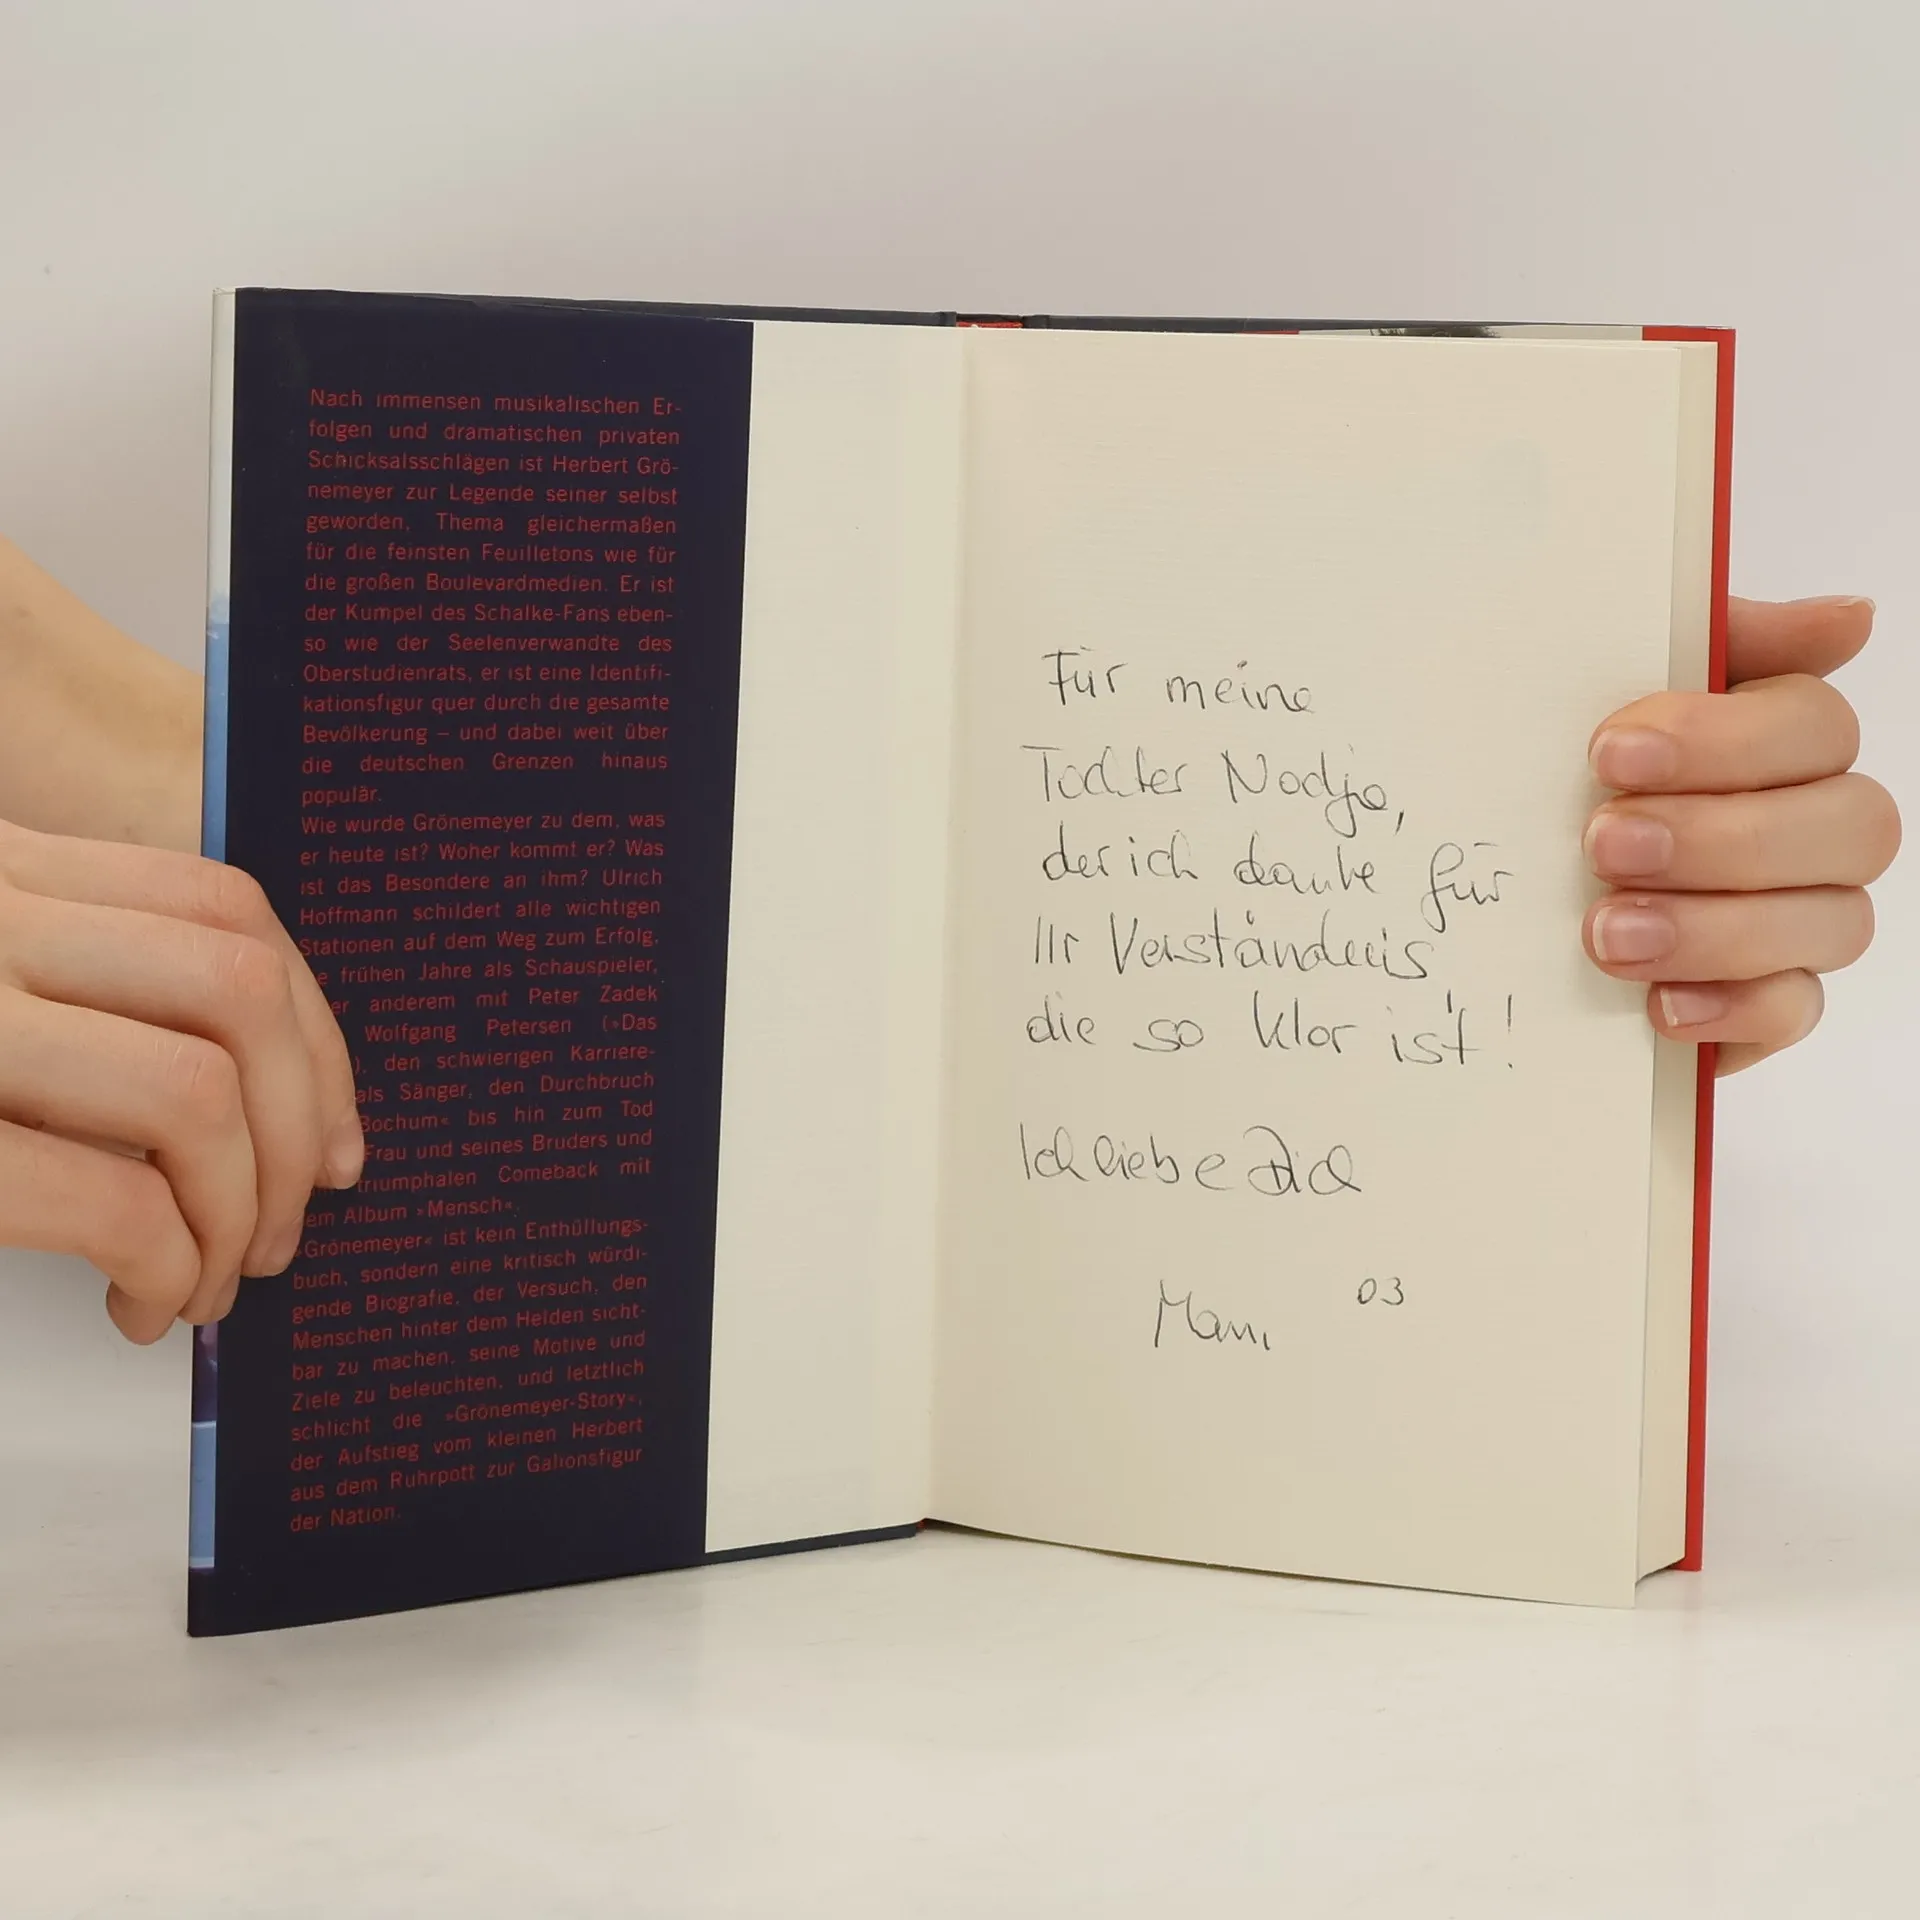 Nach immensen musikalischen Er-
folgen und dramatischen privaten
Schicksalsschlägen ist Herbert Grö-
nemeyer zur Legende seiner selbst
geworden, Thema gleichermaßen
für die feinsten Feuilletons wie für
die großen Boulevardmedien. Er ist
der Kumpel des Schalke-Fans eben-
so wie der Seelenverwandte des
Oberstudienrats, er ist eine Identifi-
kationsfigur quer durch die gesamte
Bevölkerung – und dabei weit über
die deutschen Grenzen hinaus
populär.
Wie wurde Grönemeyer zu dem, was
er heute ist? Woher kommt er? Was
ist das Besondere an ihm? Ulrich
Hoffmann schildert alle wichtigen
Stationen auf dem Weg zum Erfolg,
e frühen Jahre als Schauspieler,
er anderem mit Peter Zadek
Wolfgang Petersen (»Das
), den schwierigen Karriere-
als Sänger, den Durchbruch
Bochum« bis hin zum Tod
Frau und seines Bruders und
triumphalen Comeback mit
em Album »Mensch«.
»Grönemeyer« ist kein Enthüllungs-
buch, sondern eine kritisch würdi-
gende Biografie, der Versuch, den
Menschen hinter dem Helden sicht-
bar zu machen, seine Motive und
Ziele zu beleuchten, und letztlich
schlicht die »Grönemeyer-Story«,
der Aufstieg vom kleinen Herbert
aus dem Ruhrpott zur Galionsfigur
der Nation.
Für meine
Tochter Nadja,
der ich danke für
Ihr Verständnis
die so klar ist!
Ich liebe Dich
Mam, 03